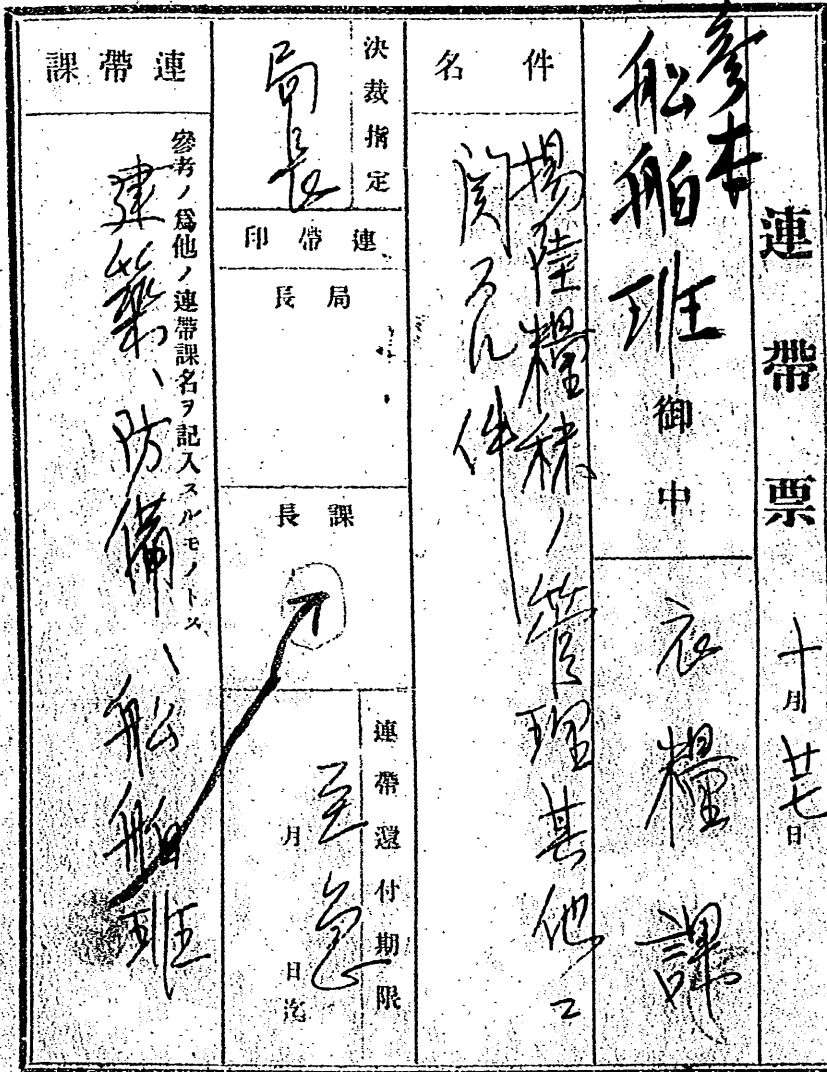 連帶票 十月廿七日
參本
船舶班御中
衣糧課
件名
揚陸糧秣ノ管理其他ニ
関スル件
決裁指定
局長
連帶印
局長
課長
連帶還付期限
至急
月 日迄
連帶課
參考ノ爲他ノ連帶課名ヲ記入スルモノトス
建築、防備、船舶班